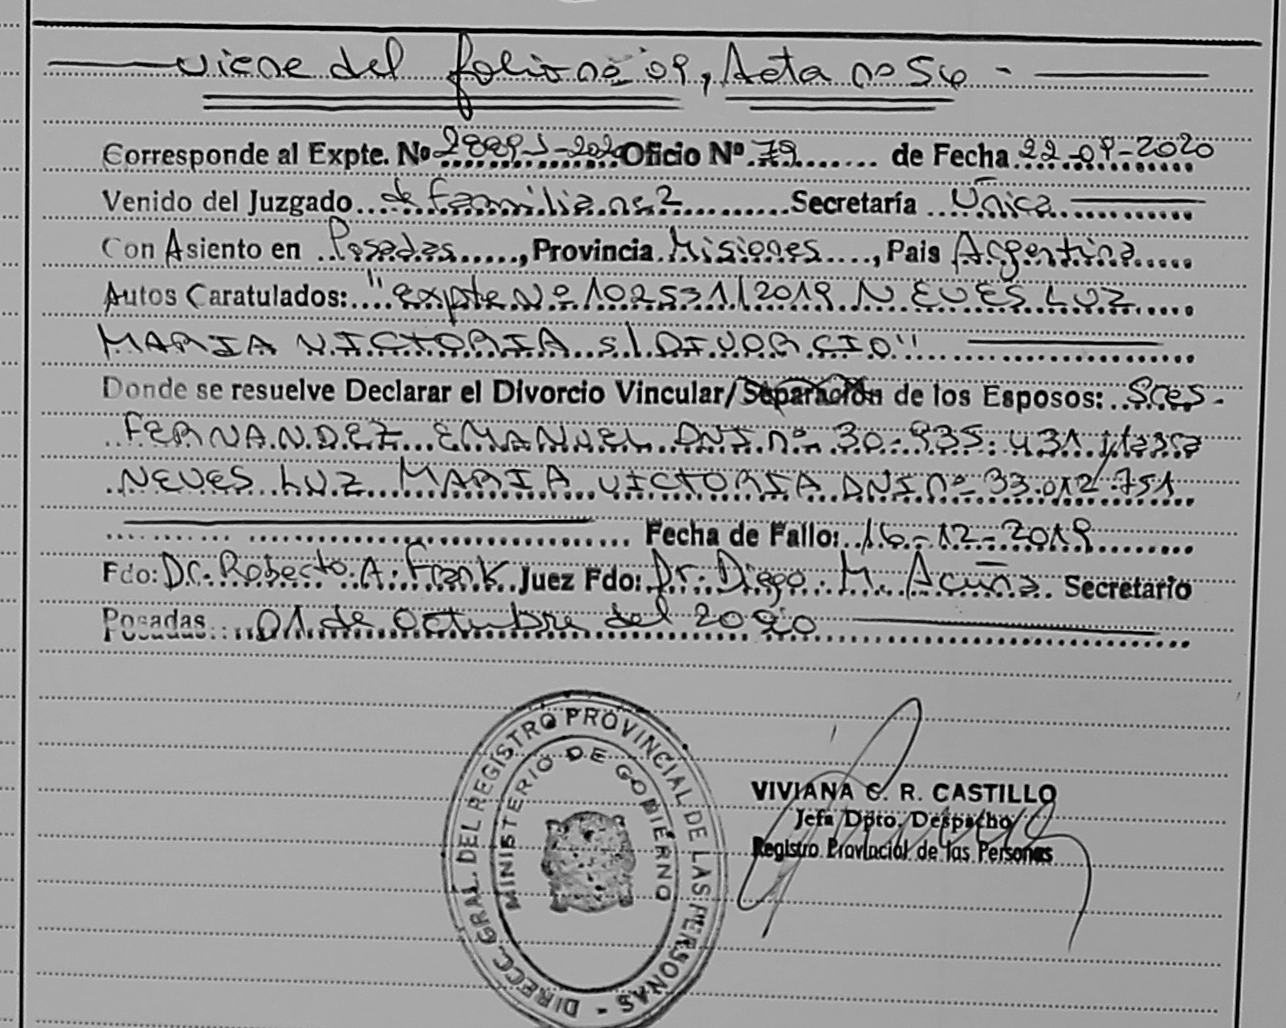 viene del folio nº 09, Acta nº 54 -
Corresponde al Expte. Nº 2889-J-2020 Oficio Nº 79 de Fecha 22-09-2020
Venido del Juzgado de Familia nº 2 Secretaría Única
Con Asiento en Posadas, Provincia Misiones, Pais Argentina
Autos Caratulados: "expte Nº 102531/2019 NEVES LUZ
MARIA VICTORIA s/ DIVORCIO"
Donde se resuelve Declarar el Divorcio Vincular/Separación de los Esposos: Sres.
FERNANDEZ EMANUEL DNI nº 30.935.431 y
NEVES LUZ MARIA VICTORIA DNI nº 33.012.751
Fecha de Fallo: 16-12-2019
Fdo: Dr. Roberto A. Frank Juez Fdo: Dr. Diego M. Acuña Secretario
Posadas 01 de octubre del 2020
DIRECC. GRAL. DEL REGISTRO PROVINCIAL DE LAS PERSONAS -
MINISTERIO DE GOBIERNO
VIVIANA C. R. CASTILLO
Jefa Dpto. Despacho
Registro Provincial de las Personas